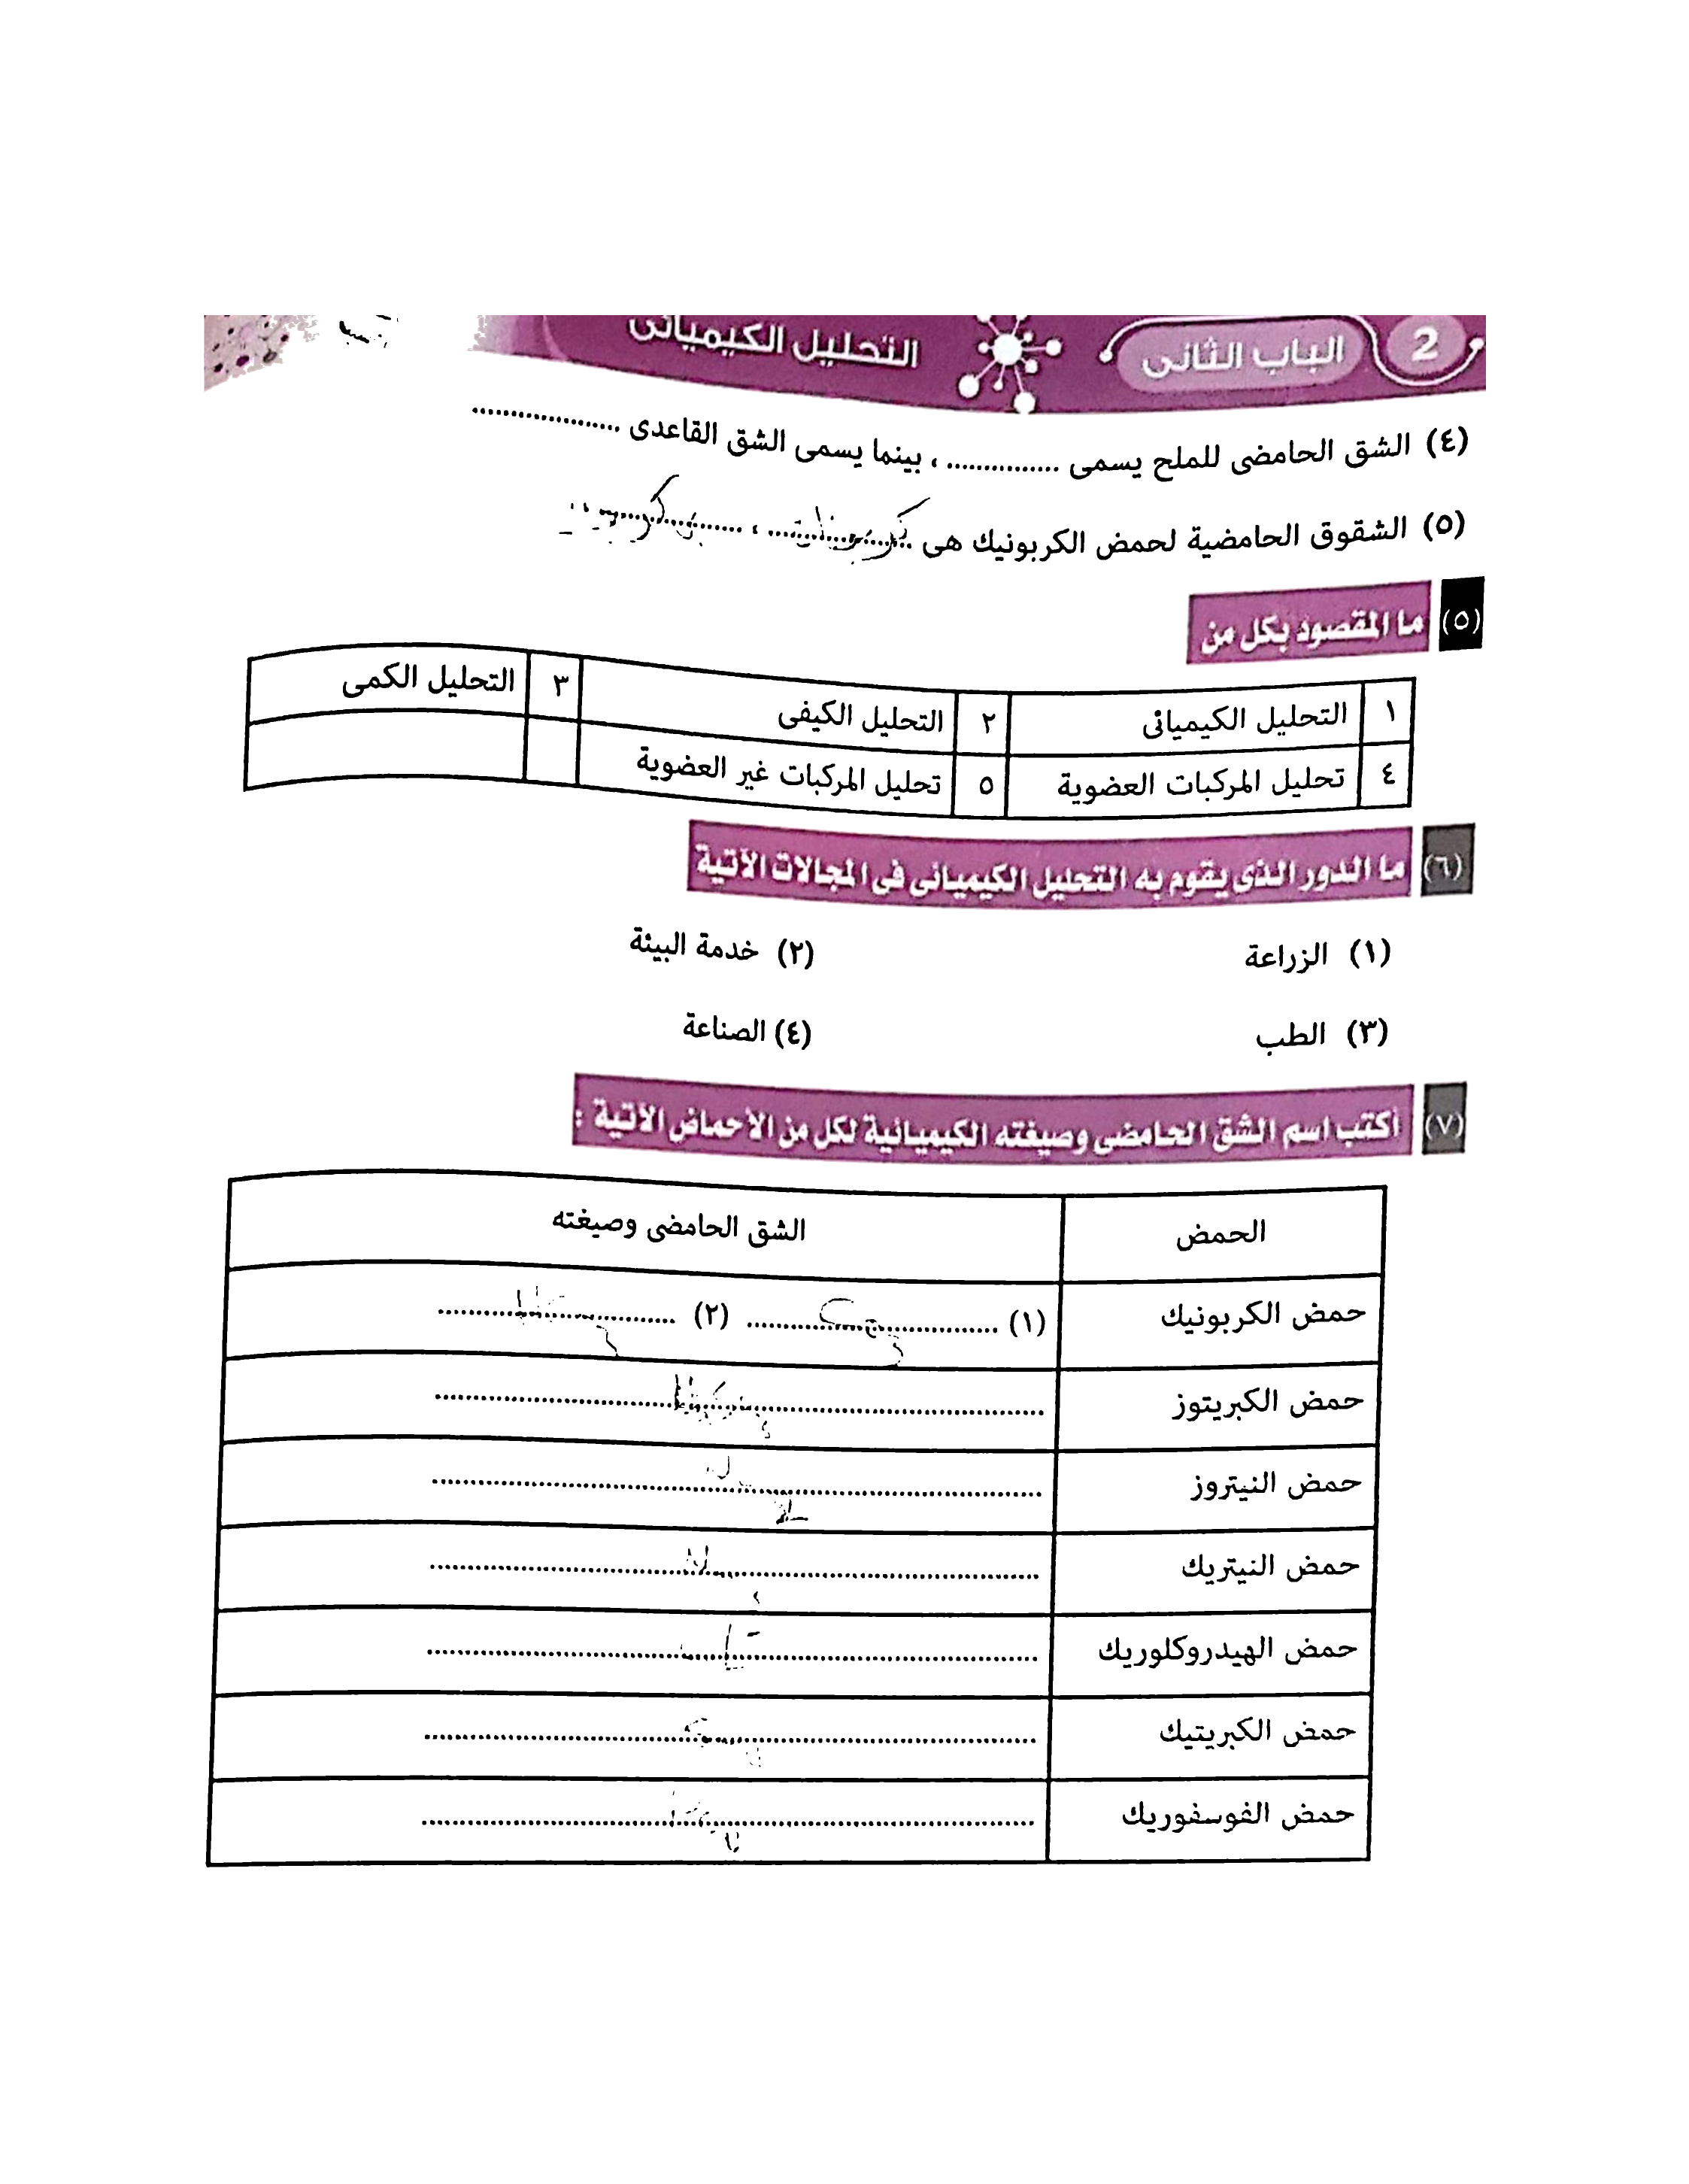 2 الباب الثانى التحليل الكيميائى
(٤) الشق الحامضى للملح يسمى ............... ، بينما يسمى الشق القاعدى ...................
(٥) الشقوق الحامضية لحمض الكربونيك هى كربونات ،
(٥) ما المقصود بكل من
١ التحليل الكيميائى ٢ التحليل الكيفى ٣ التحليل الكمى
٤ تحليل المركبات العضوية ٥ تحليل المركبات غير العضوية
(٦) ما الدور الذى يقوم به التحليل الكيميائى فى المجالات الآتية
(١) الزراعة (٢) خدمة البيئة
(٣) الطب (٤) الصناعة
(٧) أكتب اسم الشق الحامضى وصيغته الكيميائية لكل من الأحماض الآتية :
الحمض الشق الحامضى وصيغته
حمض الكربونيك (١) (٢)
حمض الكبريتوز
حمض النيتروز
حمض النيتريك
حمض الهيدروكلوريك
حمض الكبريتيك
حمض الفوسفوريك